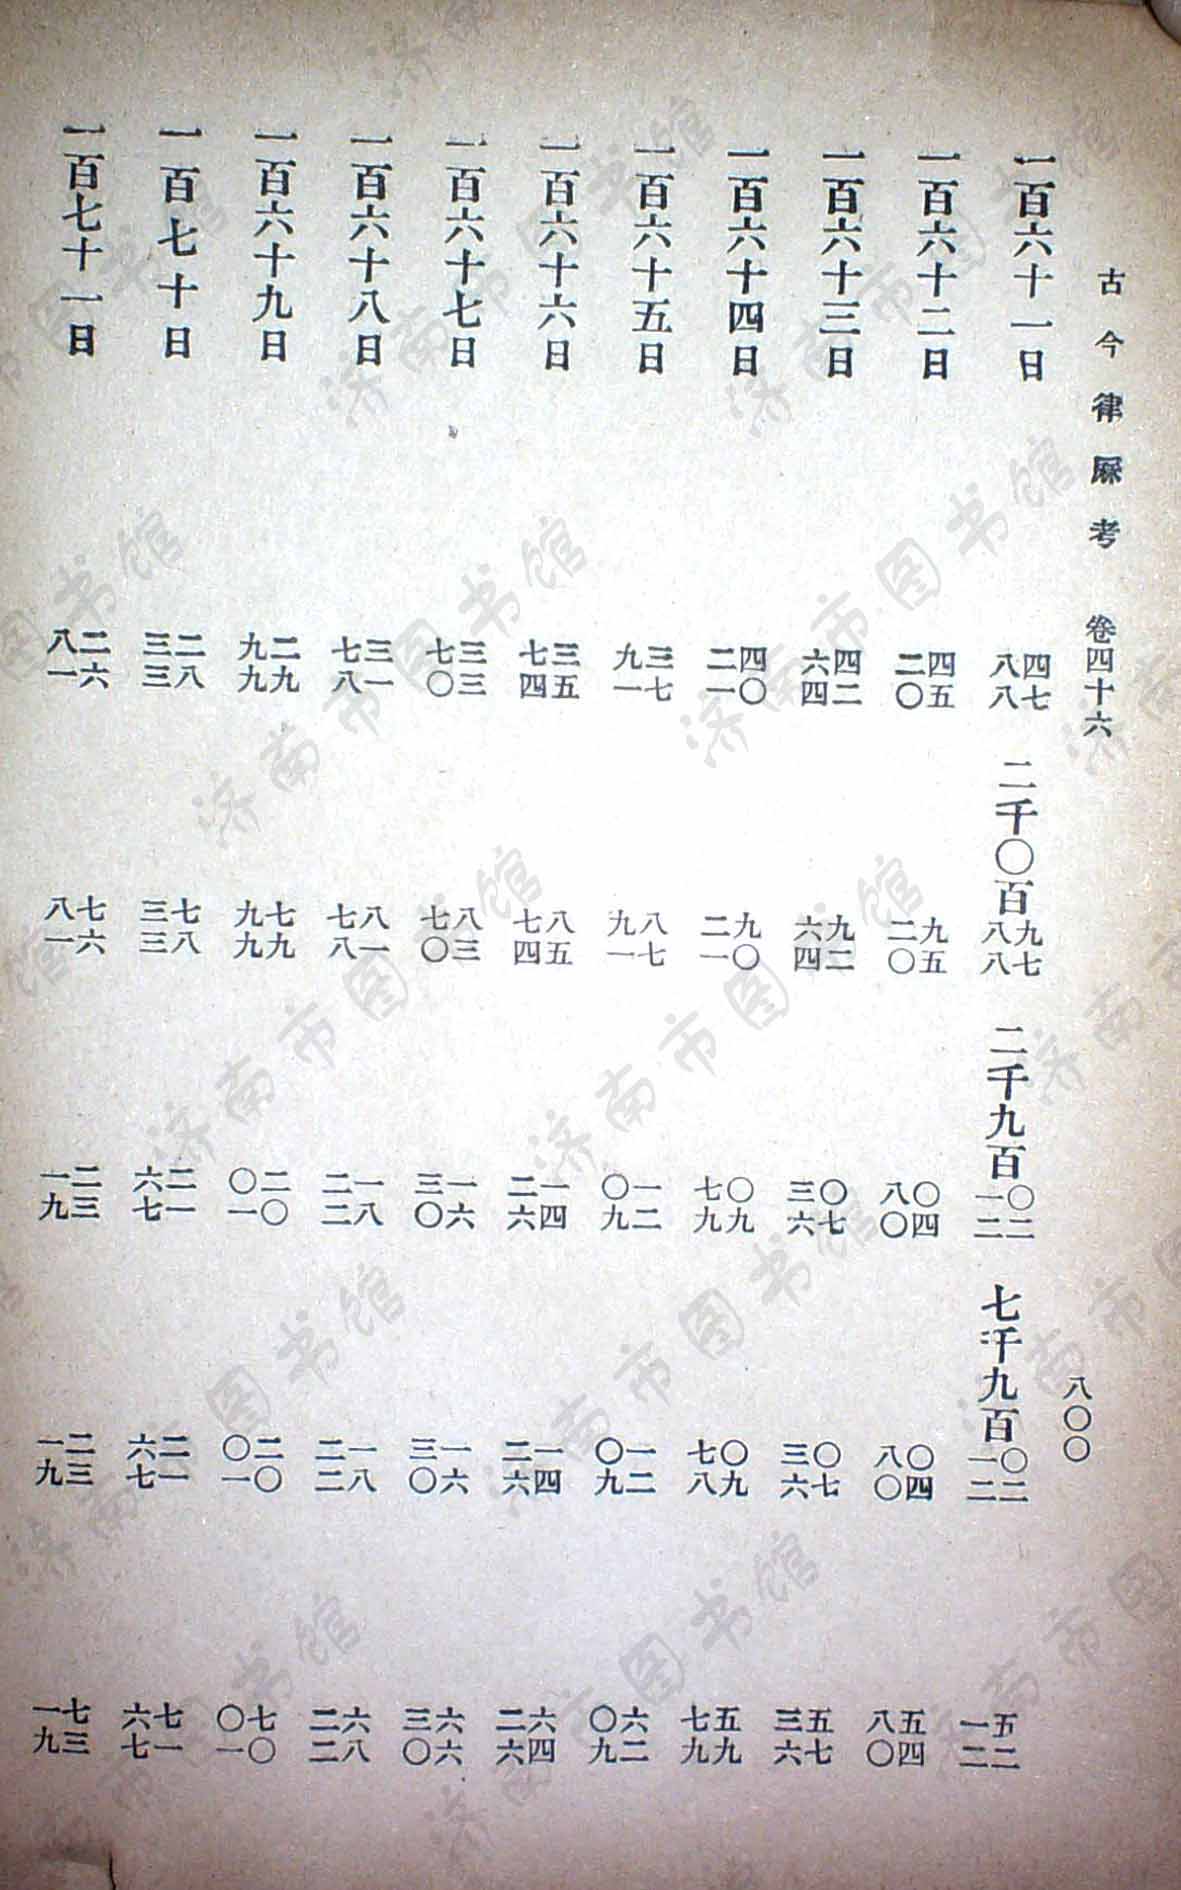 古今律厤考 卷四十六 八〇〇
一百六十一日 四七八八 二千〇百九七八八 二千九百〇二一二 七千九百〇二一二 五二一二
一百六十二日 四五二〇 九五二〇 〇四八〇 〇四八〇 五四八〇
一百六十三日 四二六四 九二六四 〇七三六 〇七三六 五七三六
一百六十四日 四〇二一 九〇二一 〇九七九 〇九七八 五九七九
一百六十五日 三七九一 八七九一 一二〇九 一二〇九 六二〇九
一百六十六日 三五七四 八五七四 一四二六 一四二六 六四二六
一百六十七日 三三七〇 八三七〇 一六三〇 一六三〇 六六三〇
一百六十八日 三一七八 八一七八 一八二二 一八二二 六八二二
一百六十九日 二九九九 七九九九 二〇〇一 二〇〇一 七〇〇一
一百七十日 二八三三 七八三三 二一六七 二一六七 七一六七
一百七十一日 二六八一 七六八一 二三一九 二三一九 七三一九
济南市图书馆